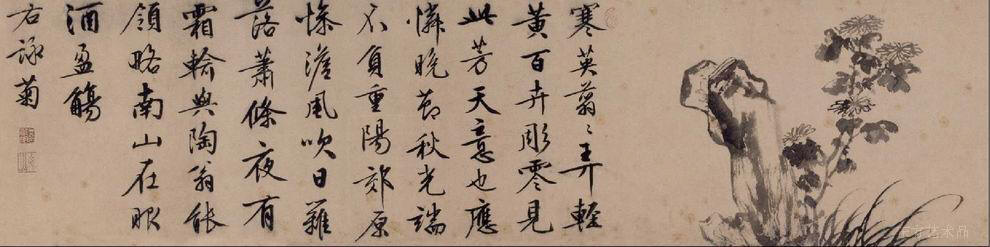 寒英翦〻弄輕
黄百卉彫零見
此芳天意也應
憐晚節秋光端
不負重陽郊原
慘澹風吹日籬
落蕭條夜有
霜輸與陶翁能
領略南山在眼
酒盈觴
右詠菊
艺术品